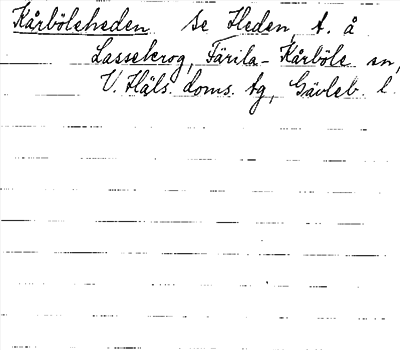 Kårböleheden se Heden, t. å
Lassekrog, Färila-Kårböle sn,
V. Häls. doms. tg, Gävleb. l.